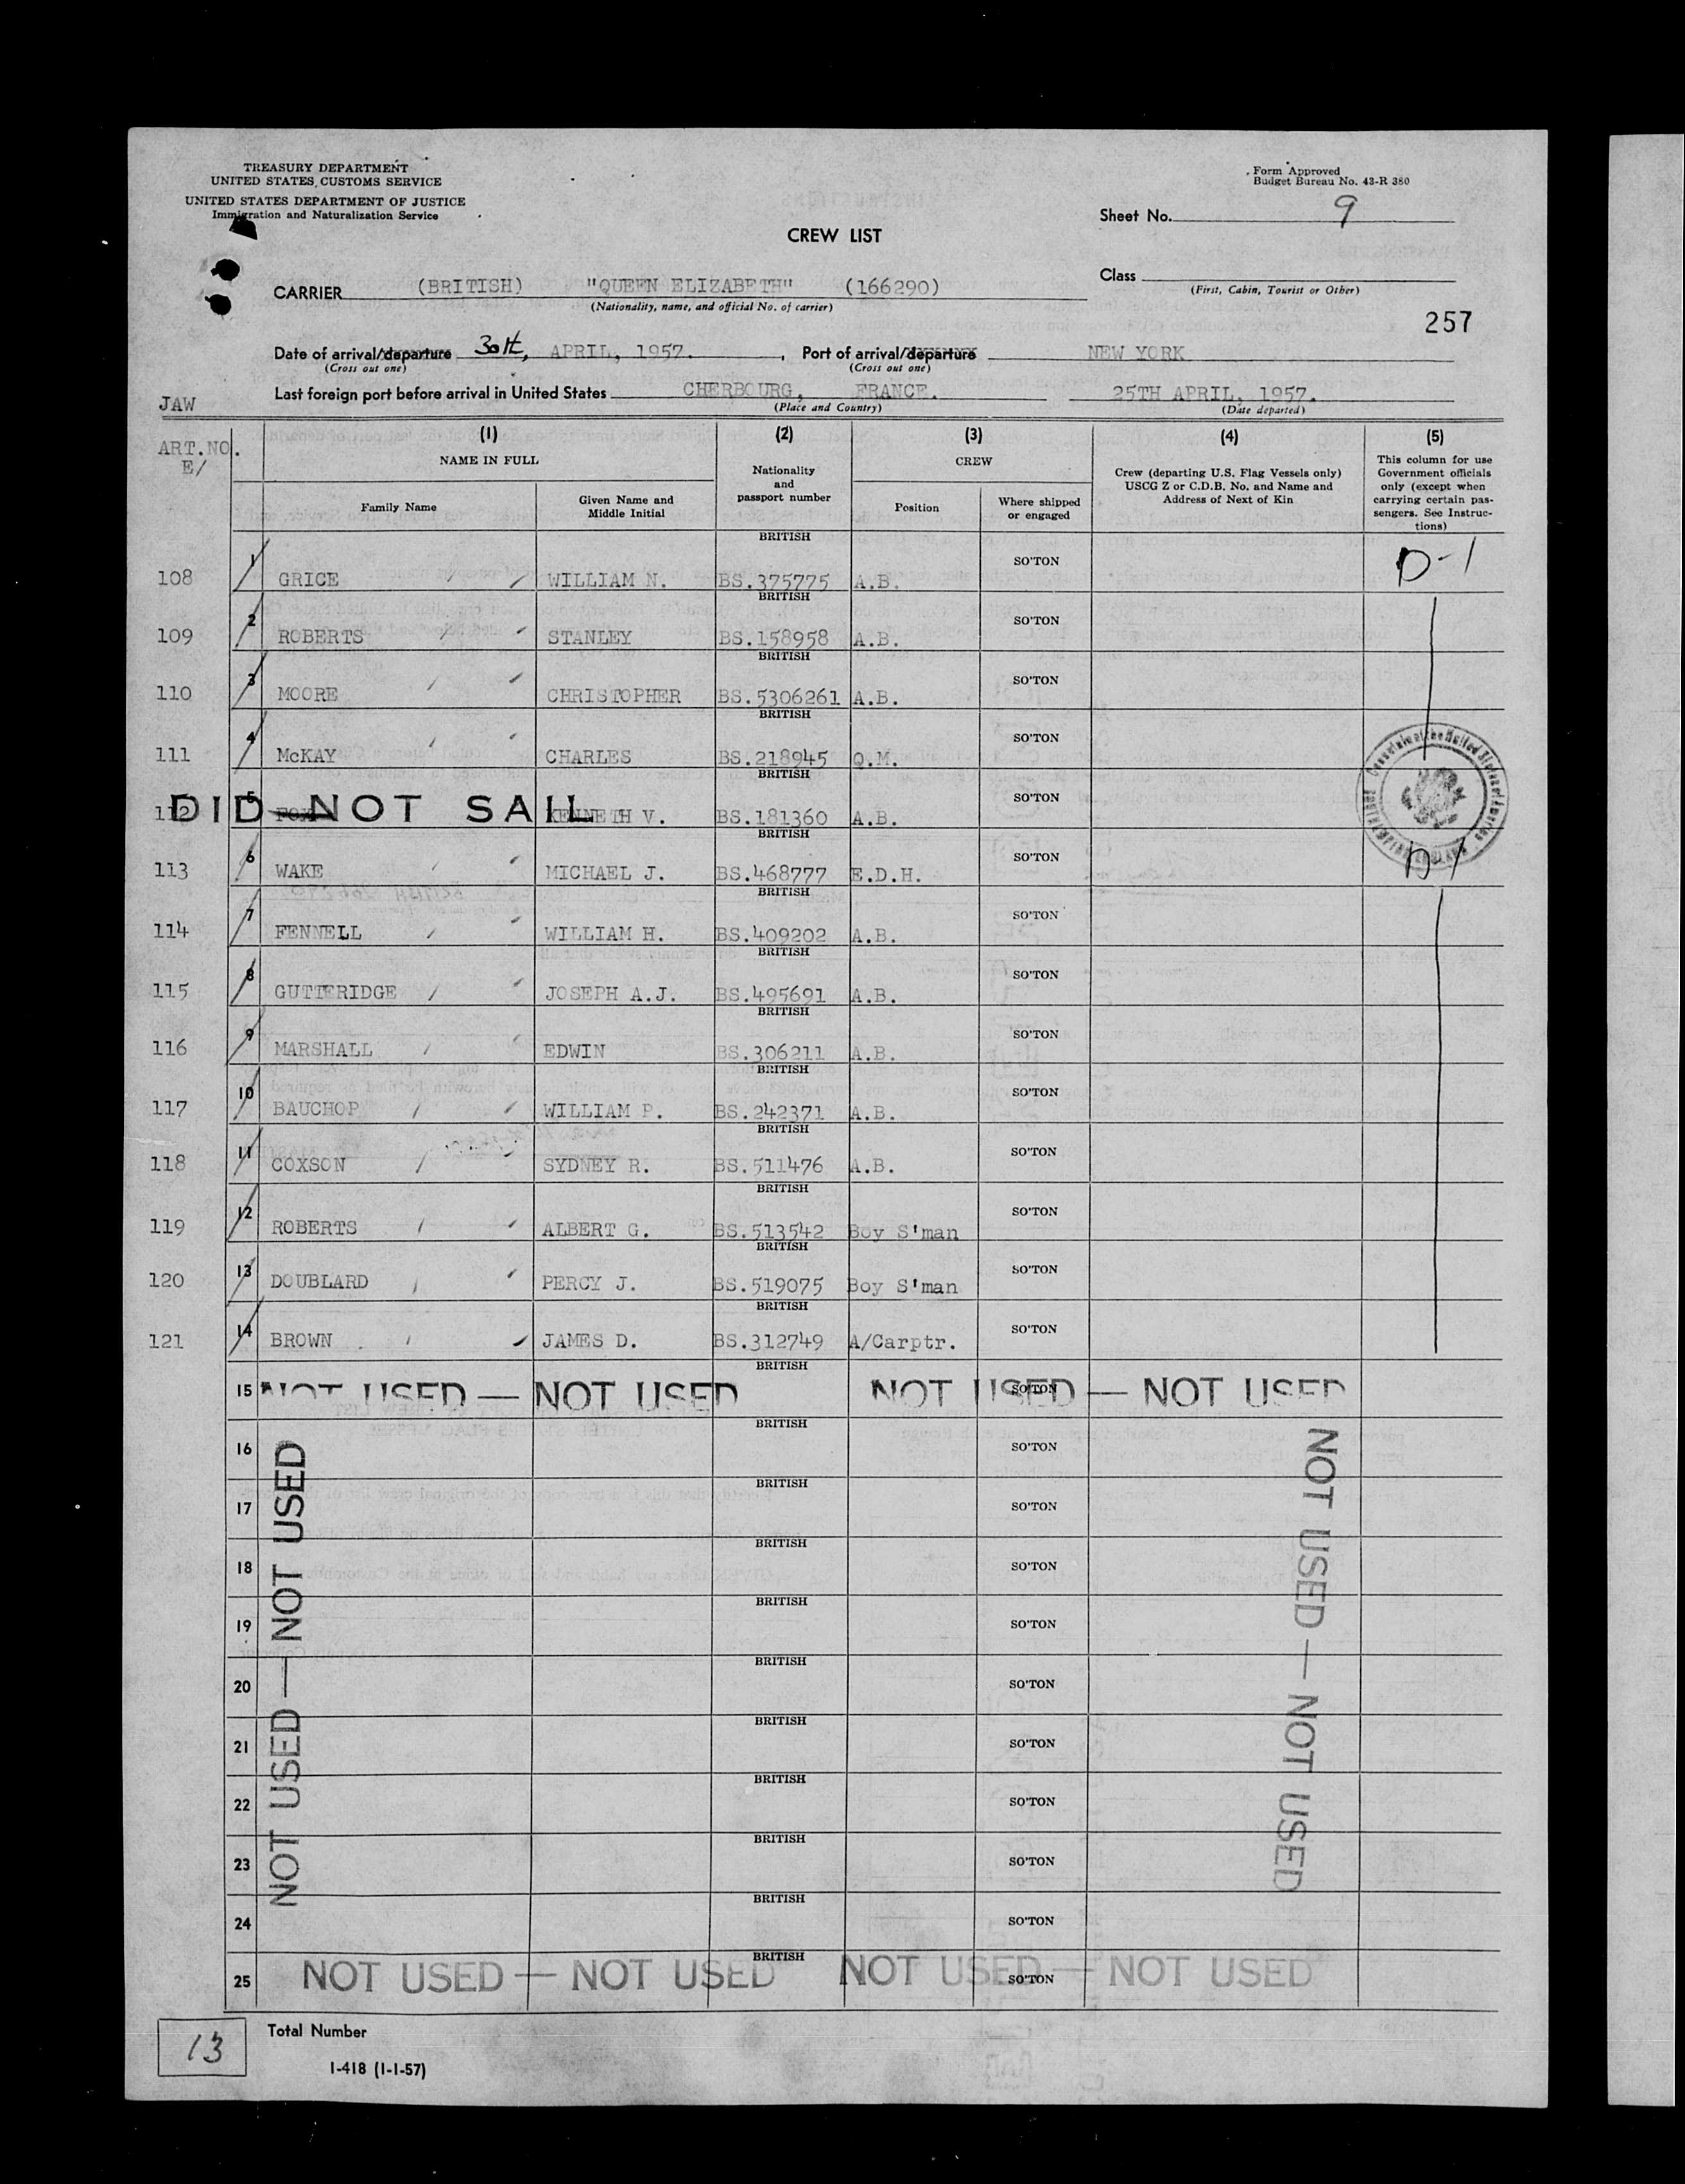 TREASURY DEPARTMENT
UNITED STATES CUSTOMS SERVICE
UNITED STATES DEPARTMENT OF JUSTICE
Immigration and Naturalization Service
Form Approved
Budget Bureau No. 43-R 380
Sheet No. 9
CREW LIST
Class
(First, Cabin, Tourist or Other)
CARRIER (BRITISH) "QUEEN ELIZABETH" (166290)
(Nationality, name, and official No. of carrier)
257
Date of arrival/departure 30th, APRIL, 1957. , Port of arrival/departure NEW YORK
(Cross out one) (Cross out one)
Last foreign port before arrival in United States CHERBOURG, FRANCE. 25TH APRIL, 1957.
(Place and Country) (Date departed)
JAW
ART.NO.
E/
(1) (2) (3) (4) (5)
NAME IN FULL
Family Name
Given Name and
Middle Initial
Nationality
and
passport number
CREW
Position
Where shipped
or engaged
Crew (departing U.S. Flag Vessels only)
USCG Z or C.D.B. No. and Name and
Address of Next of Kin
This column for use
Government officials
only (except when
carrying certain pas-
sengers. See Instruc-
tions)
BRITISH
108 1 GRICE WILLIAM N. BS.375775 A.B. SO'TON D-1
BRITISH
109 2 ROBERTS STANLEY BS.158958 A.B. SO'TON
BRITISH
110 3 MOORE CHRISTOPHER BS.5306261 A.B. SO'TON
BRITISH
111 4 McKAY CHARLES BS.218945 Q.M. SO'TON
BRITISH
112 5 FOX KENNETH V. BS.181360 A.B. SO'TON
DID NOT SAIL
BRITISH
113 6 WAKE MICHAEL J. BS.468777 E.D.H. SO'TON D-1
BRITISH
114 7 FENNELL WILLIAM H. BS.409202 A.B. SO'TON
BRITISH
115 8 GUTTERIDGE JOSEPH A.J. BS.495691 A.B. SO'TON
BRITISH
116 9 MARSHALL EDWIN BS.306211 A.B. SO'TON
BRITISH
117 10 BAUCHOP WILLIAM P. BS.242371 A.B. SO'TON
BRITISH
118 11 COXSON SYDNEY R. BS.511476 A.B. SO'TON
BRITISH
119 12 ROBERTS ALBERT G. BS.513542 Boy S'man SO'TON
BRITISH
120 13 DOUBLARD PERCY J. BS.519075 Boy S'man SO'TON
BRITISH
121 14 BROWN JAMES D. BS.312749 A/Carptr. SO'TON
BRITISH
15 NOT USED — NOT USED NOT USED — NOT USED SO'TON
BRITISH
16 SO'TON
BRITISH
17 SO'TON
BRITISH
18 SO'TON
BRITISH
19 SO'TON
BRITISH
20 SO'TON
BRITISH
21 SO'TON
BRITISH
22 SO'TON
BRITISH
23 SO'TON
BRITISH
24 SO'TON
BRITISH
25 NOT USED — NOT USED NOT USED — NOT USED SO'TON
NOT USED — NOT USED
NOT USED — NOT USED
13 Total Number
I-418 (1-1-57)